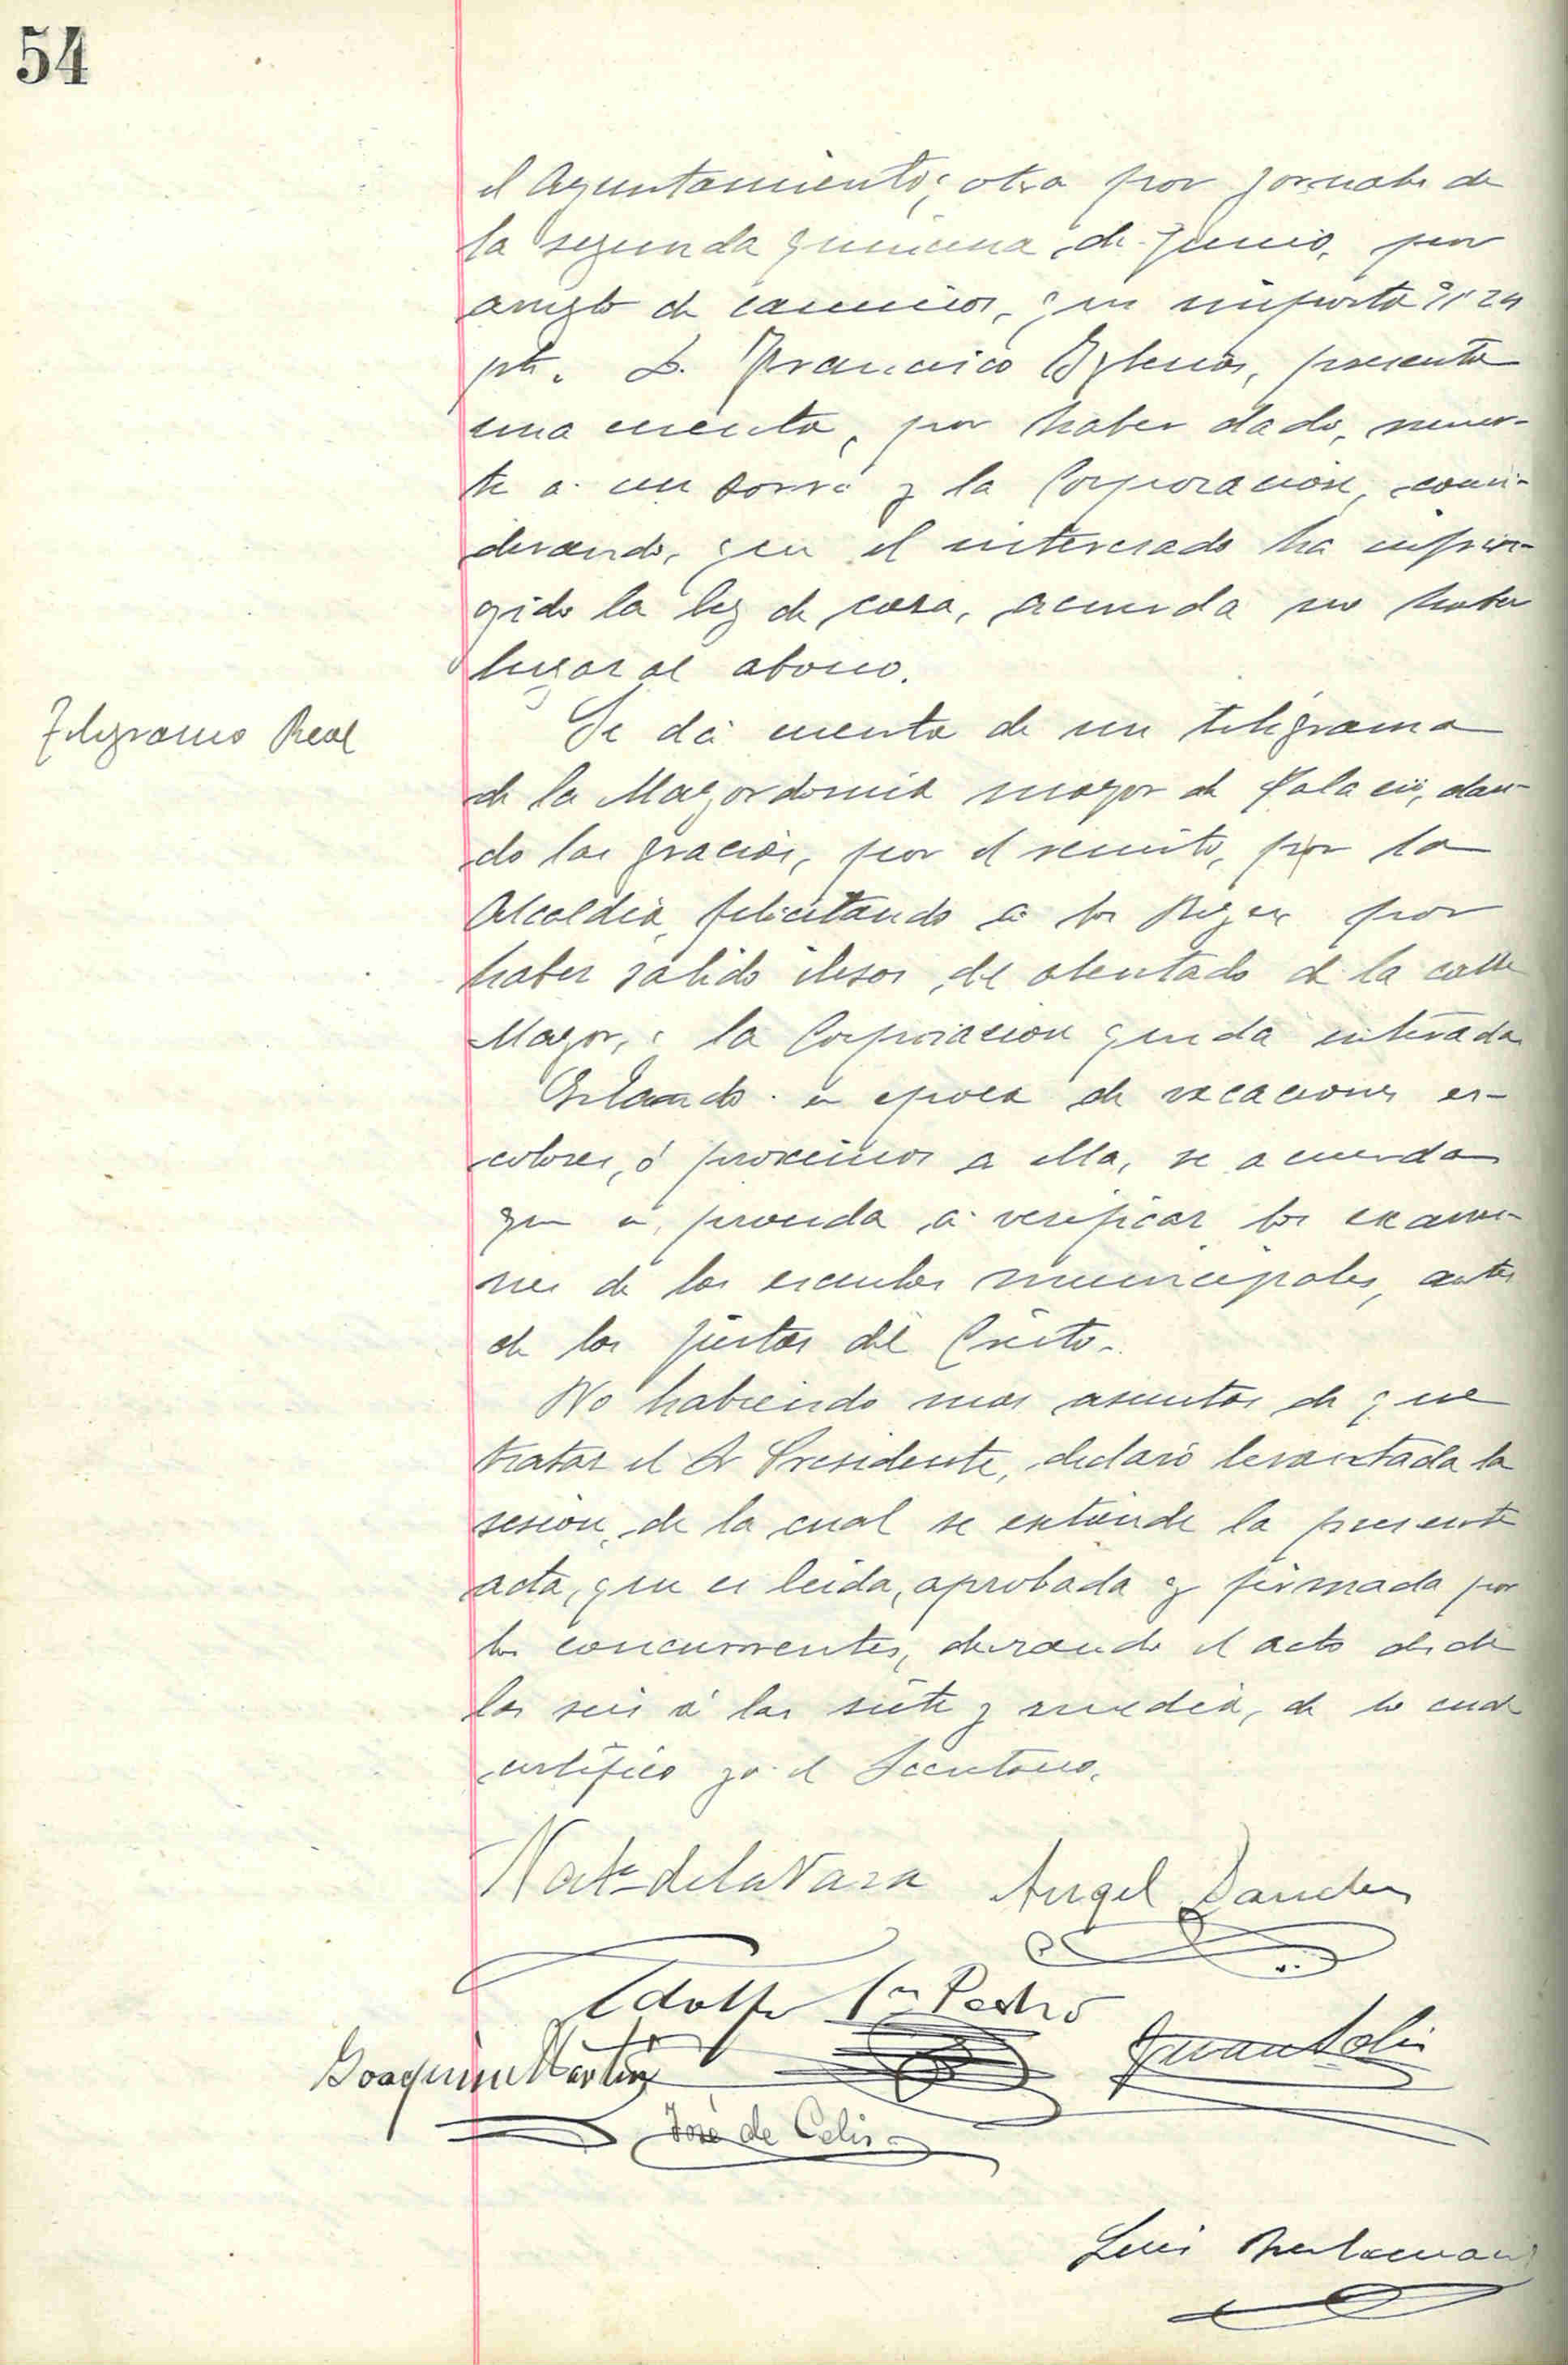 54
el Ayuntamiento; otra por jornales de
la segunda quincena, de Junio, por
arreglo de caminos, que importa 24
pts. D. Francisco Yglesias, presenta
una cuenta, por haber dado, muer-
te a un zorro y la Corporación, consi-
derando, que el interesado ha infrin-
gido la ley de caza, acuerda no haber
lugar al abono.
Telegrama Real
Se dá cuenta de un telégrama
de la Mayordomia mayor de Palacio, dan-
do las gracias, por el remito, por la
Alcaldia, felicitando a los Reyes por
haber salido ilesos, del atentado de la calle
Mayor, la Corporacion queda enterada
Estando en epoca de vacaciones es-
colares, ó proximos a ella, se acuerda
que se, proceda a verificar los exame-
nes de las escuelas municipales, antes
de las fiestas del Cristo.
No habiendo mas asuntos de que
tratar el Sr Presidente, declaró levantada la
sesion, de la cual se extiende la presente
acta, que es leida, aprobada y firmada por
los concurrentes, durando el acto desde
las seis á las siete y media, de lo cual
certifico yo el Secretario.
de la Vara Angel Sanchez
Adolfo Sn Pedro
Joaquin Martin Juan Solis
José de Celis
Luis